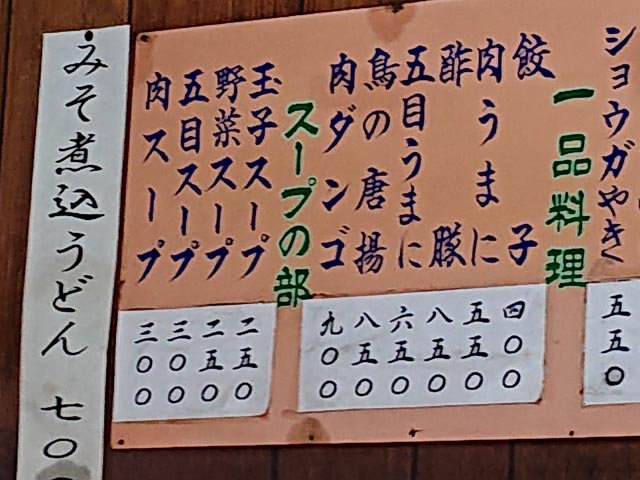 ショウガやき 五五〇
一品料理
餃子 四〇〇
肉うまに 五五〇
酢豚 八五〇
五目うまに 六五〇
鳥の唐揚 八五〇
肉ダンゴ 九〇〇
スープの部
玉子スープ 二五〇
野菜スープ 二五〇
五目スープ 三〇〇
肉スープ 三〇〇
みそ煮込うどん 七〇